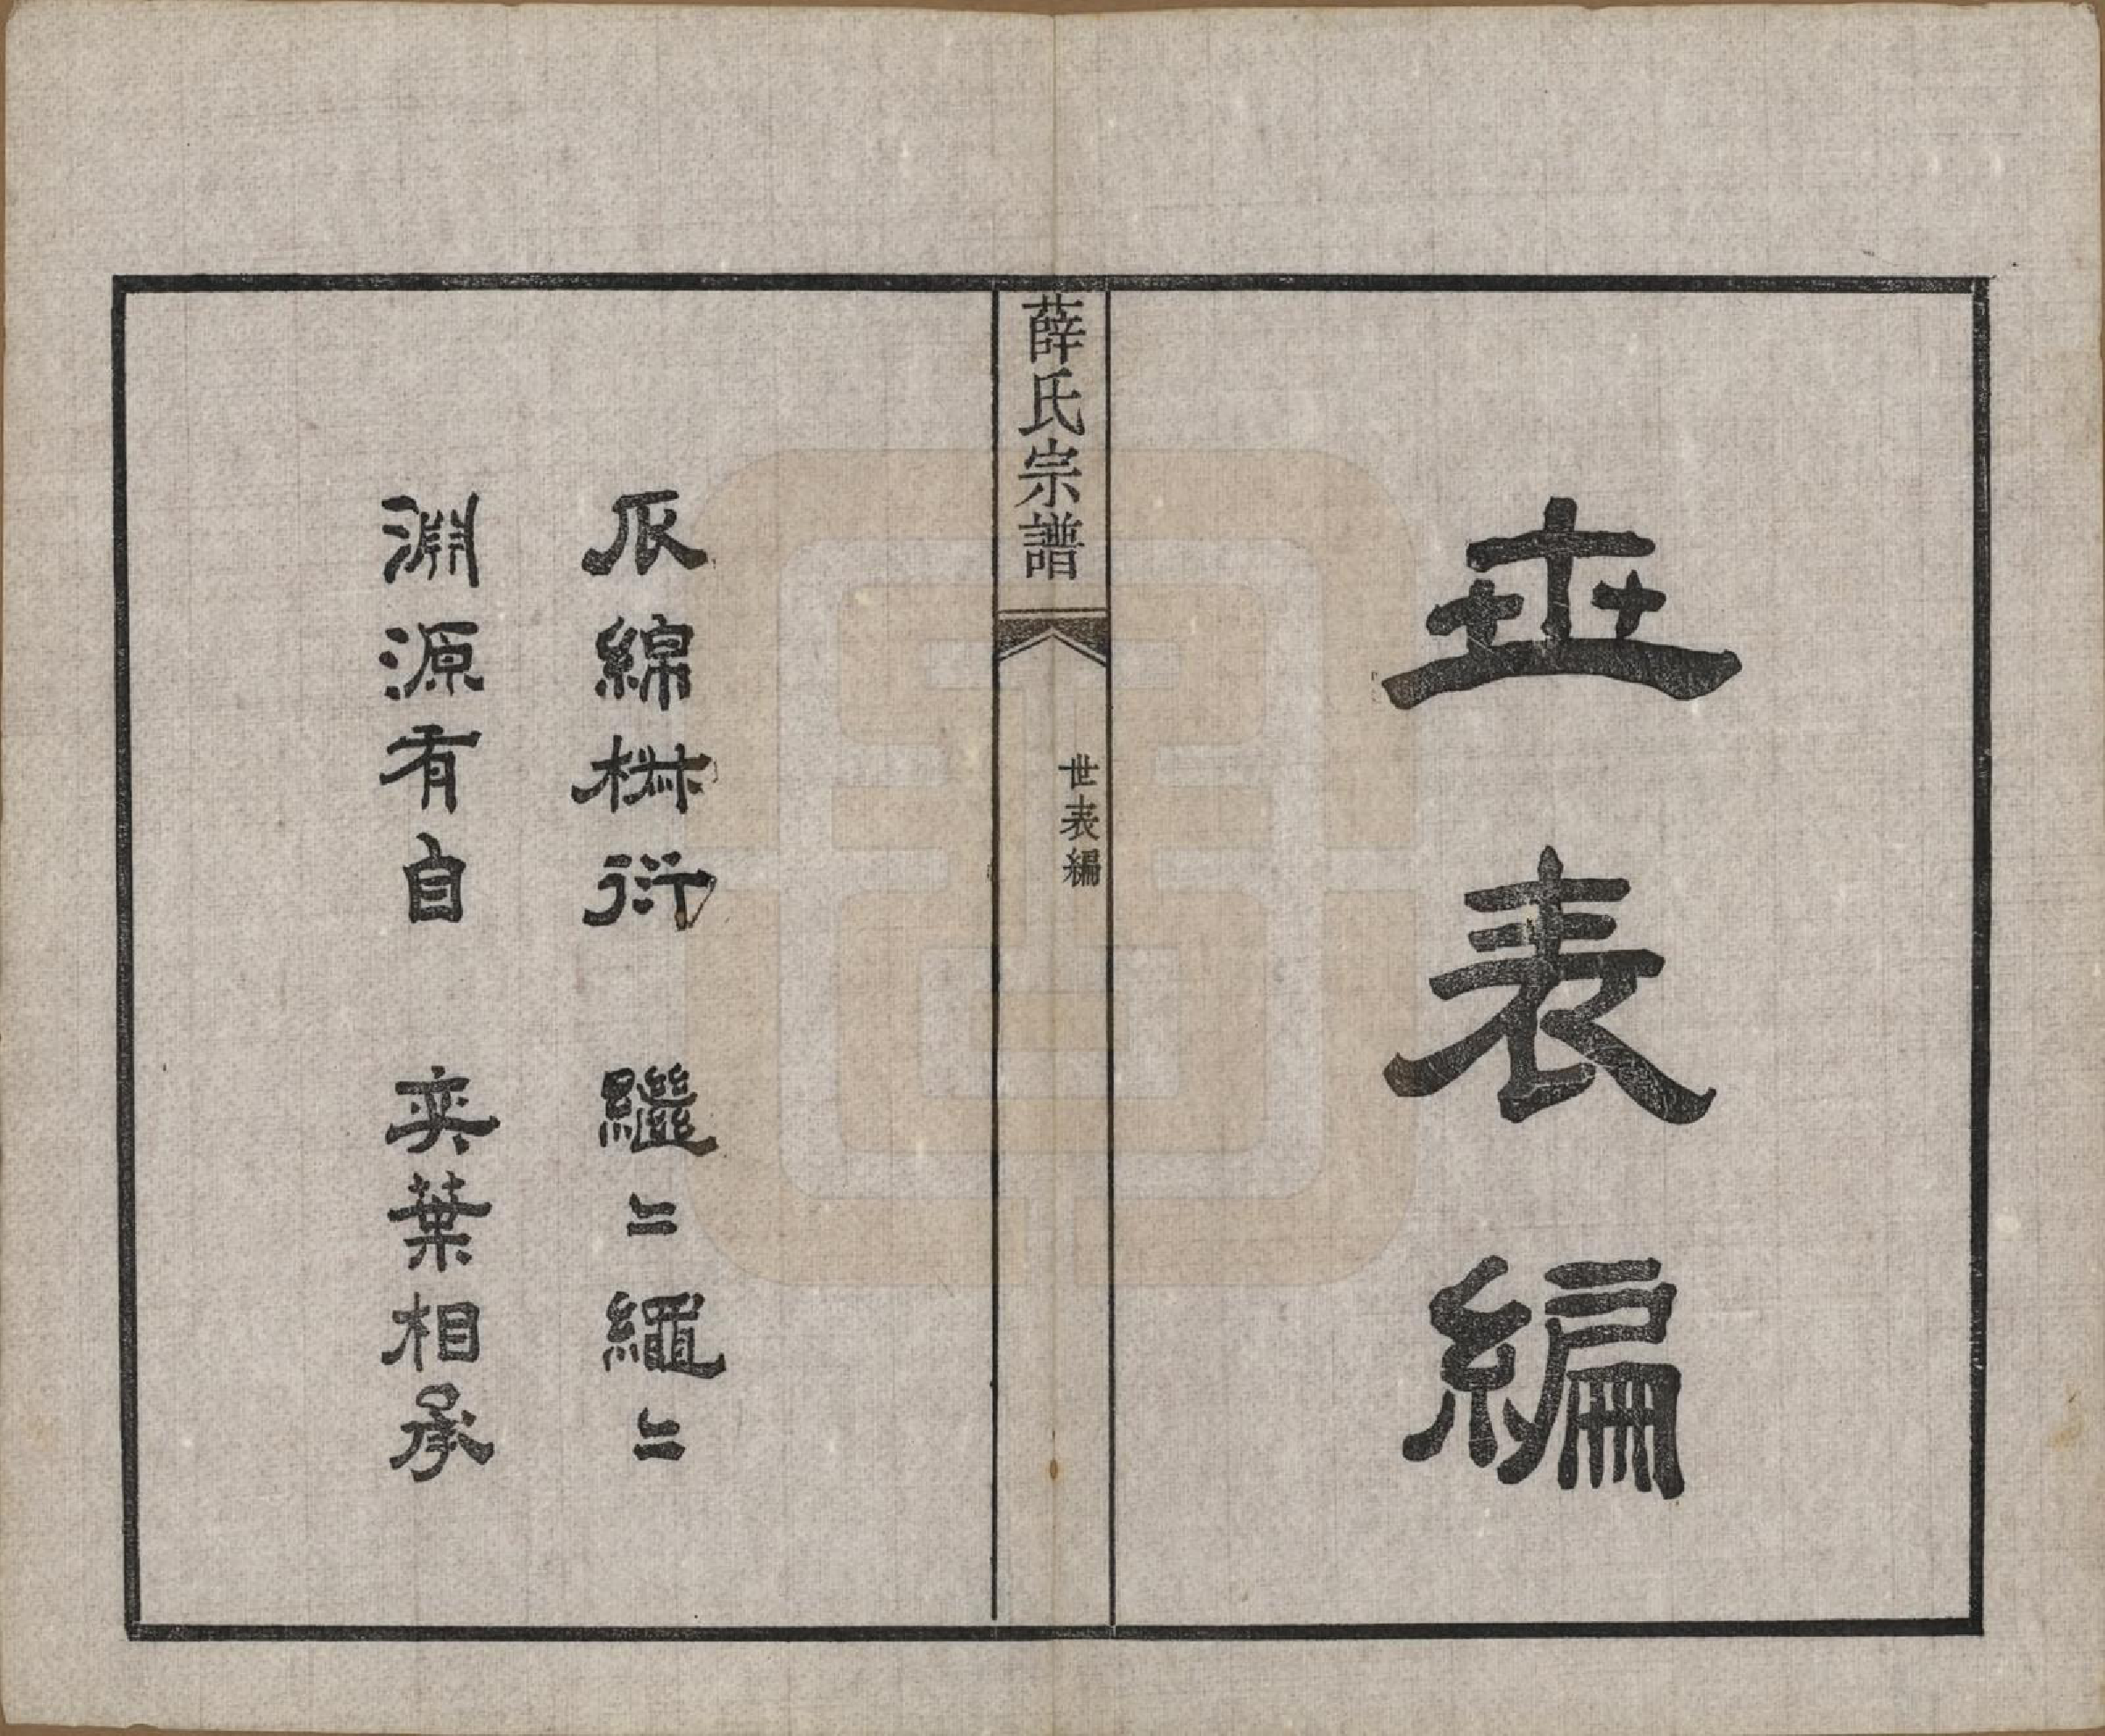 世表編
薛氏宗譜
世表編
瓜綿椒衍　繼〻繩〻
淵源有自　奕葉相承